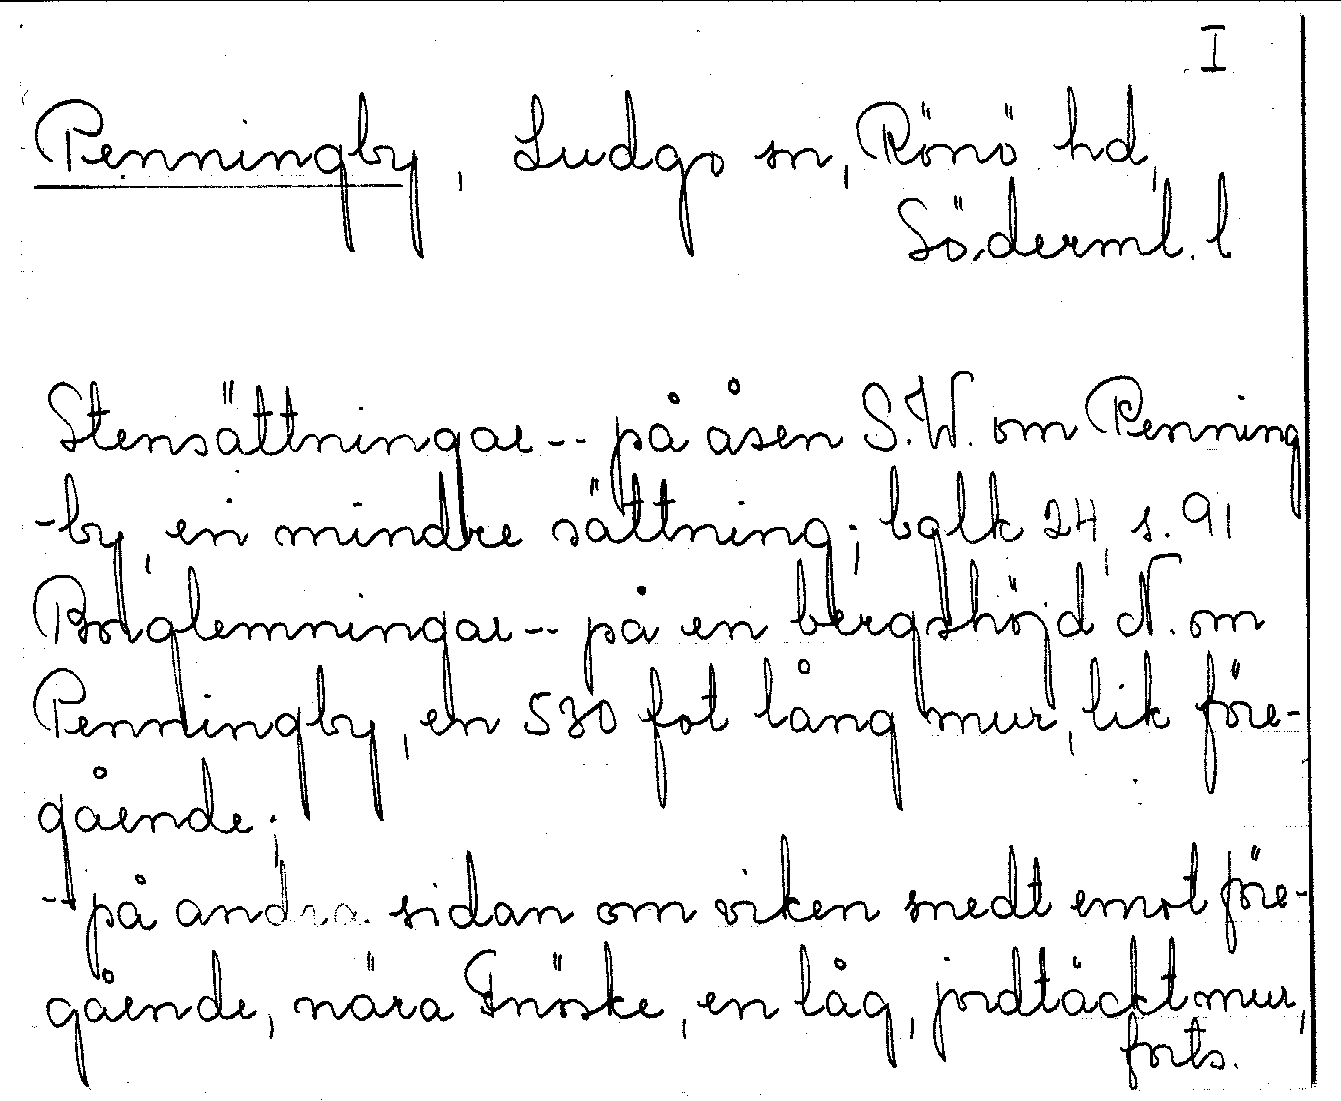 I
Penningby, Ludgo sn, Rönö hd,
Söderml. l
Stensättningar -- på åsen S.W. om Penning
-by, en mindre sättning; balk 24, s. 91
Borglemningar -- på en bergshöjd N. om
Penningby, en 530 fot lång mur, lik före-
gående;
-- på andra sidan om viken snedt emot före-
gående, nära Gnöske, en låg, jordtäckt mur,
forts.